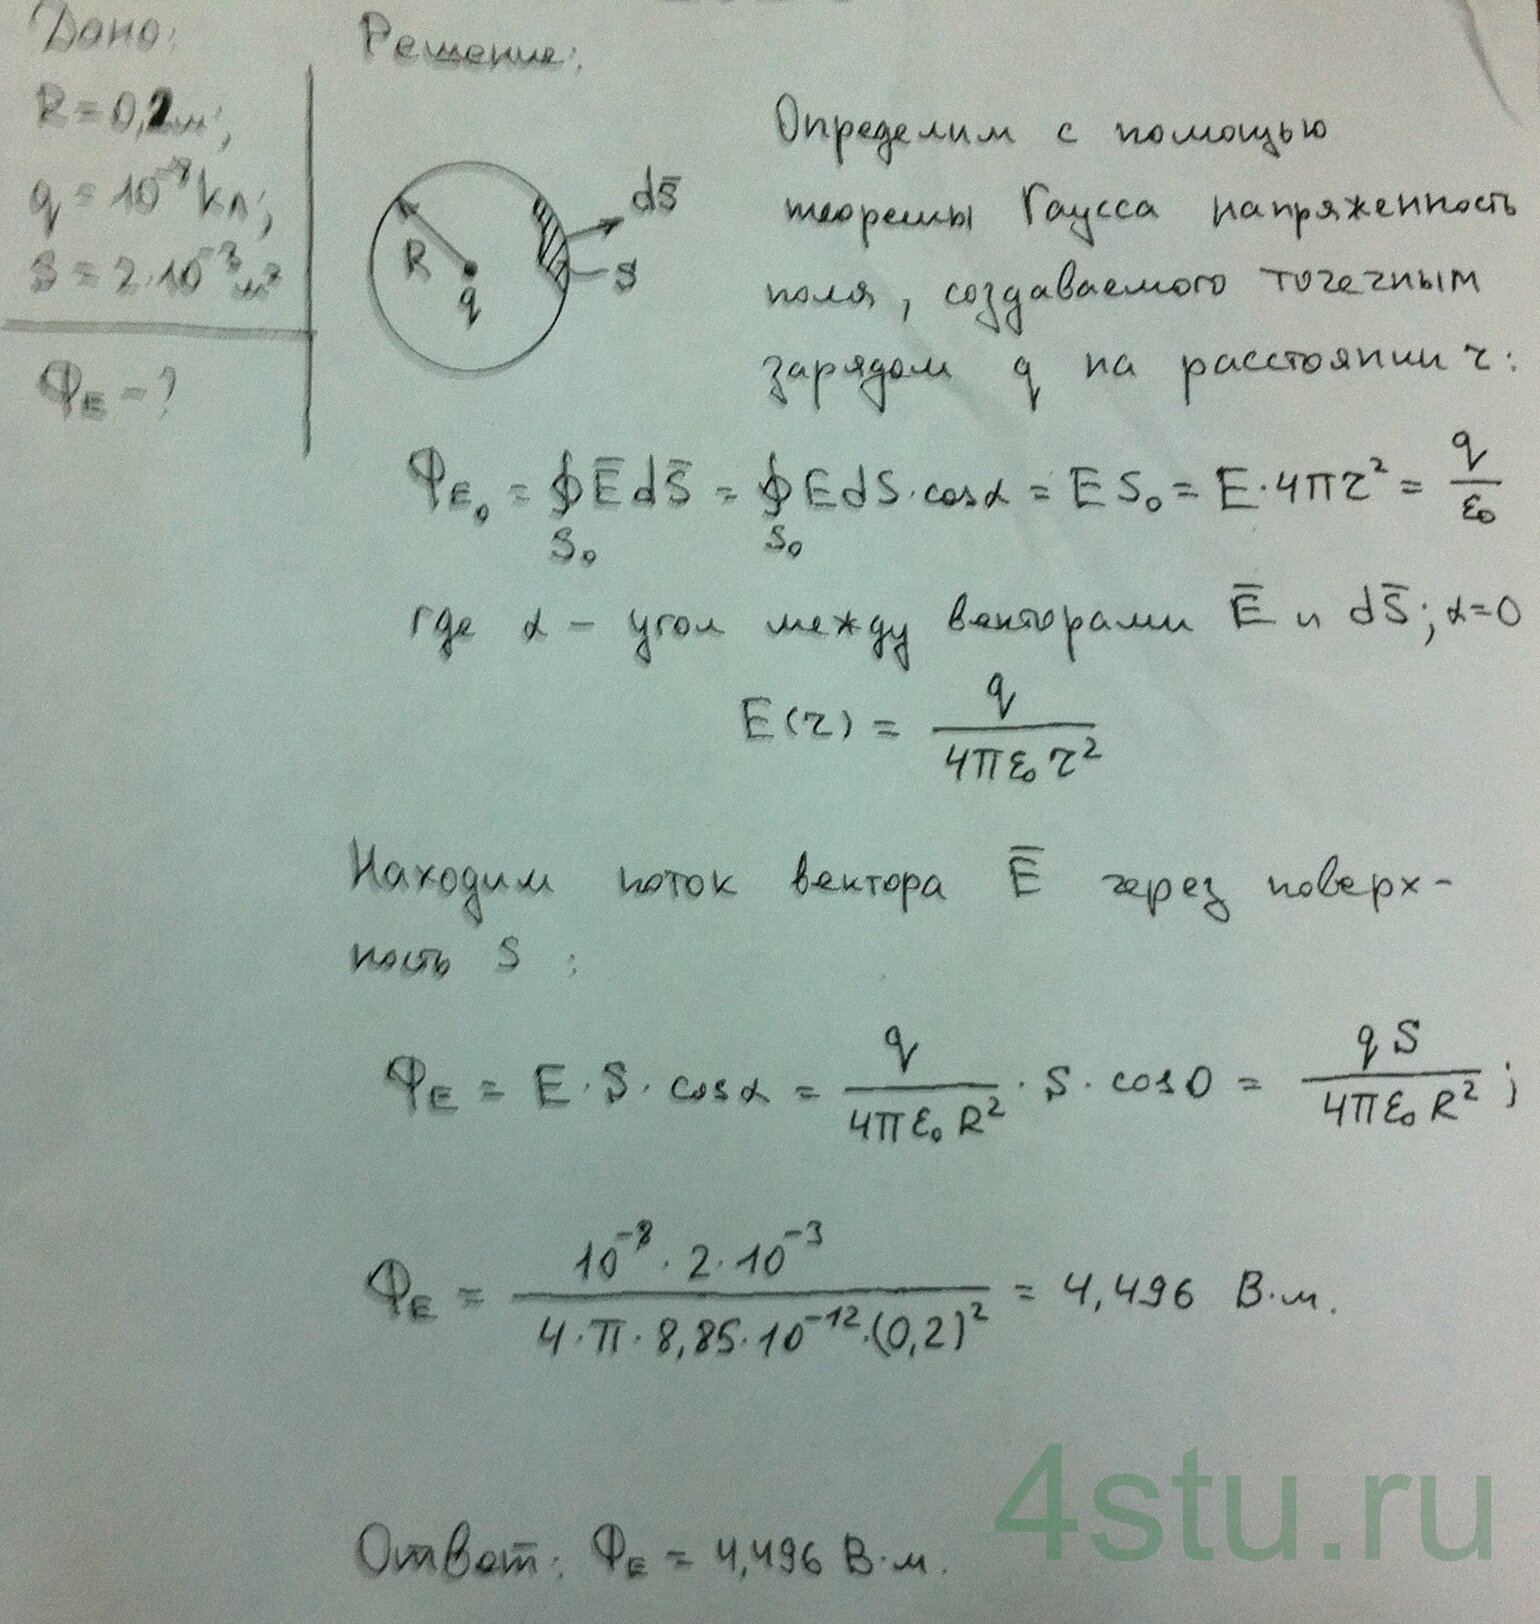 Дано:
R = 0,2 м;
q = 10⁻⁸ Кл;
S = 2·10⁻³ м²
Φ_E - ?
Решение:
R
q
dS̄
S
Определим с помощью
теоремы Гаусса напряженность
поля, создаваемого точечным
зарядом q на расстоянии r:
Φ_E₀ = ∮_S₀ Ē dS̄ = ∮_S₀ E dS · cos α = E S₀ = E · 4πr² = q/ε₀
где α - угол между векторами Ē и dS̄; α=0
E(r) = q/(4πε₀r²)
Находим поток вектора Ē через поверх-
ность S :
Φ_E = E · S · cos α = q/(4πε₀R²) · S · cos 0 = qS/(4πε₀R²) ;
Φ_E = (10⁻⁸ · 2 · 10⁻³)/(4 · π · 8,85 · 10⁻¹² · (0,2)²) = 4,496 В·м.
Ответ: Φ_E = 4,496 В·м.
4stu.ru